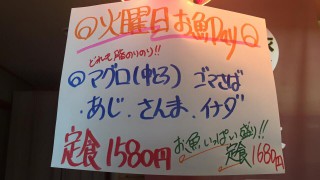 火曜日お魚Day
どれも脂のりのり!!
マグロ(中とろ) ゴマさば
・あじ、さんま、イナダ
定食1580円
お魚いっぱい盛り!!
定食1680円